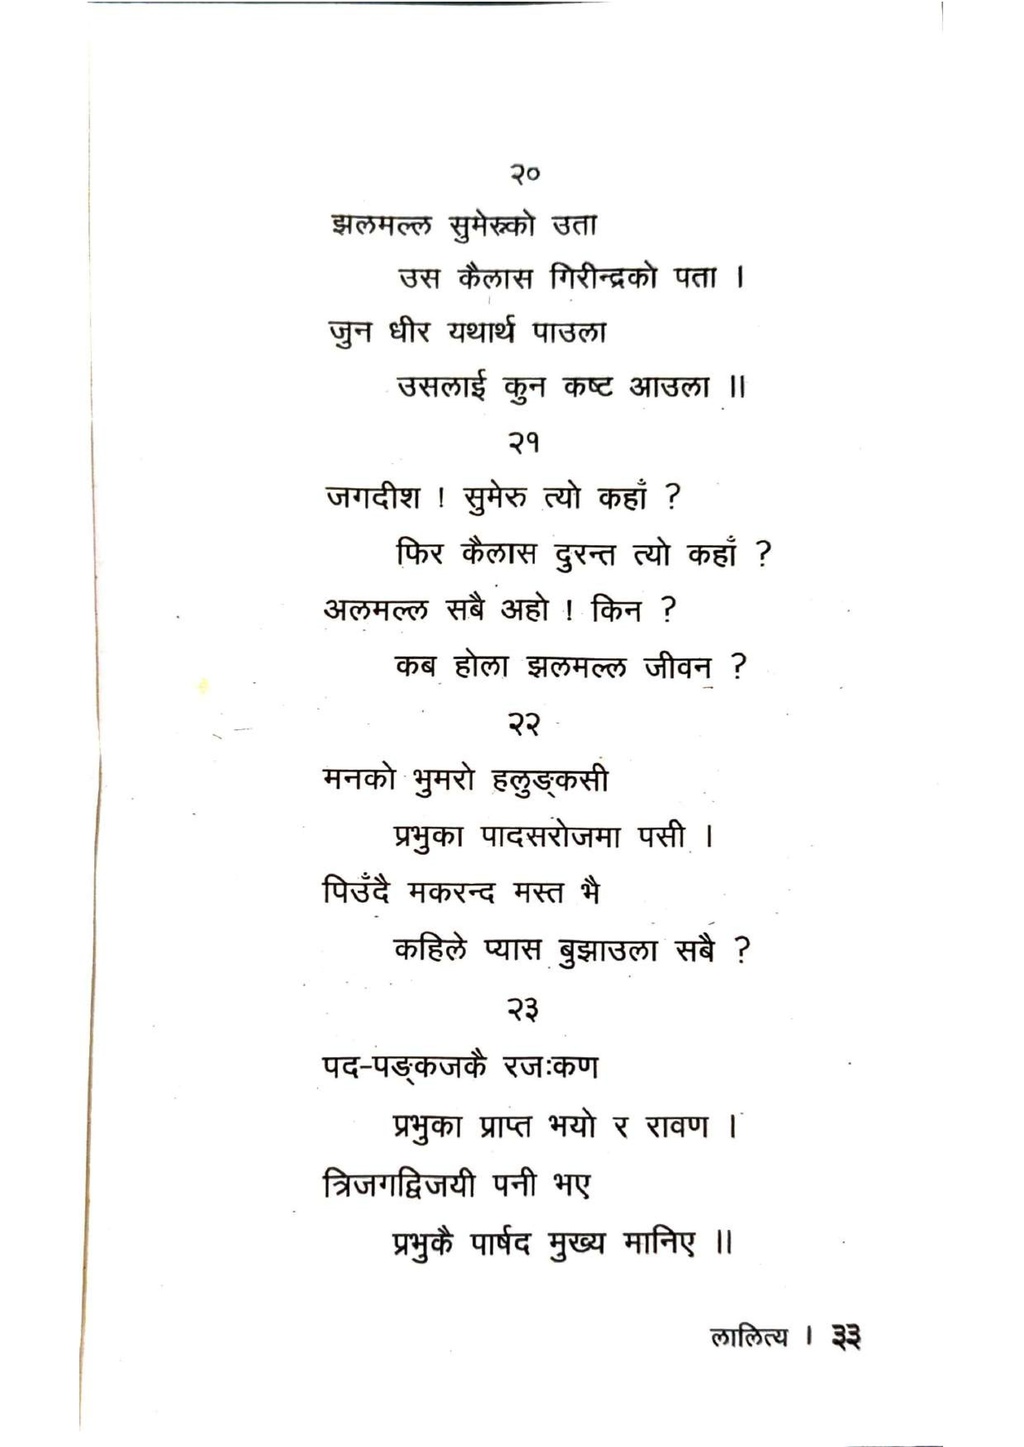 २०
झलमल्ल सुमेरुको उता
उस कैलास गिरीन्द्रको पता ।
जुन धीर यथार्थ पाउला
उसलाई कुन कष्ट आउला ॥
२१
जगदीश ! सुमेरु त्यो कहाँ ?
फिर कैलास दुरन्त त्यो कहाँ ?
अलमल्ल सबै अहो ! किन ?
कब होला झलमल्ल जीवन ?
२२
मनको भुमरो हलुङ्कसी
प्रभुका पादसरोजमा पसी ।
पिउँदै मकरन्द मस्त भै
कहिले प्यास बुझाउला सबै ?
२३
पद-पङ्कजकै रजःकण
प्रभुका प्राप्त भयो र रावण ।
त्रिजगद्विजयी पनी भए
प्रभुकै पार्षद मुख्य मानिए ॥
लालित्य । ३३